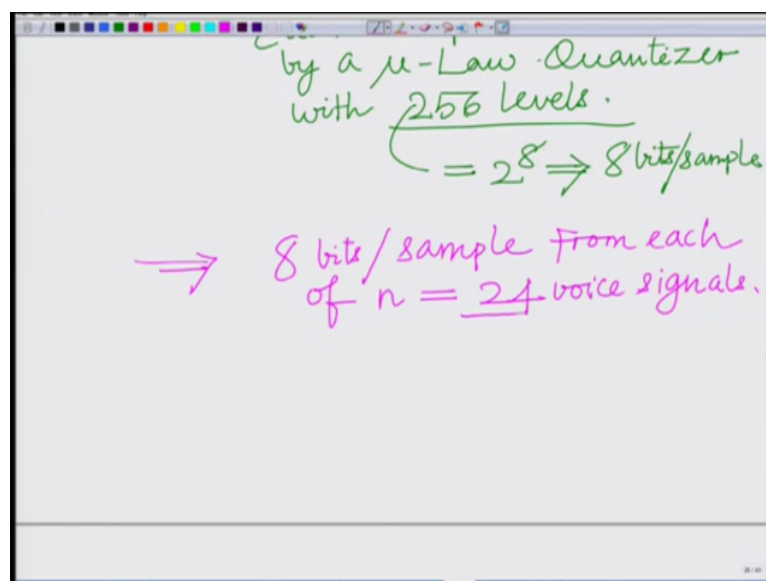 by a μ-Law Quantizer
with 256 levels.
= 2⁸ ⇒ 8 bits/sample
⇒ 8 bits/sample From each
of n = 24 voice signals.